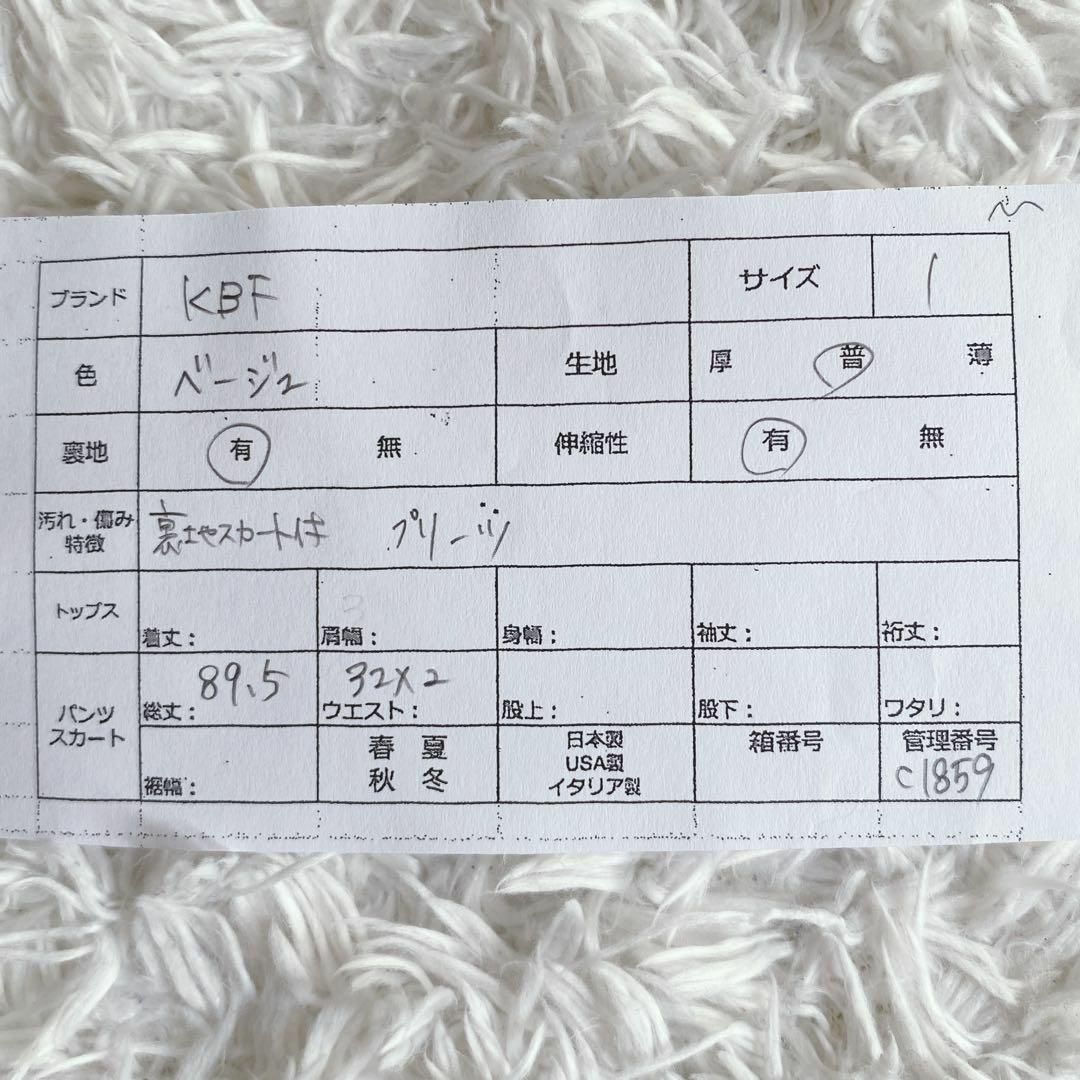 ブランド KBF サイズ 1
色 ベージュ 生地 厚 普 薄
裏地 有 無 伸縮性 有 無
汚れ・傷み
特徴
裏地スカートは プリーツ
トップス 着丈： 肩幅： 身幅： 袖丈： 裄丈：
パンツ
スカート
総丈： 89.5 ウエスト： 32×2 股上： 股下： ワタリ：
裾幅：
春 夏
秋 冬
日本製
USA製
イタリア製
箱番号
管理番号
C1859